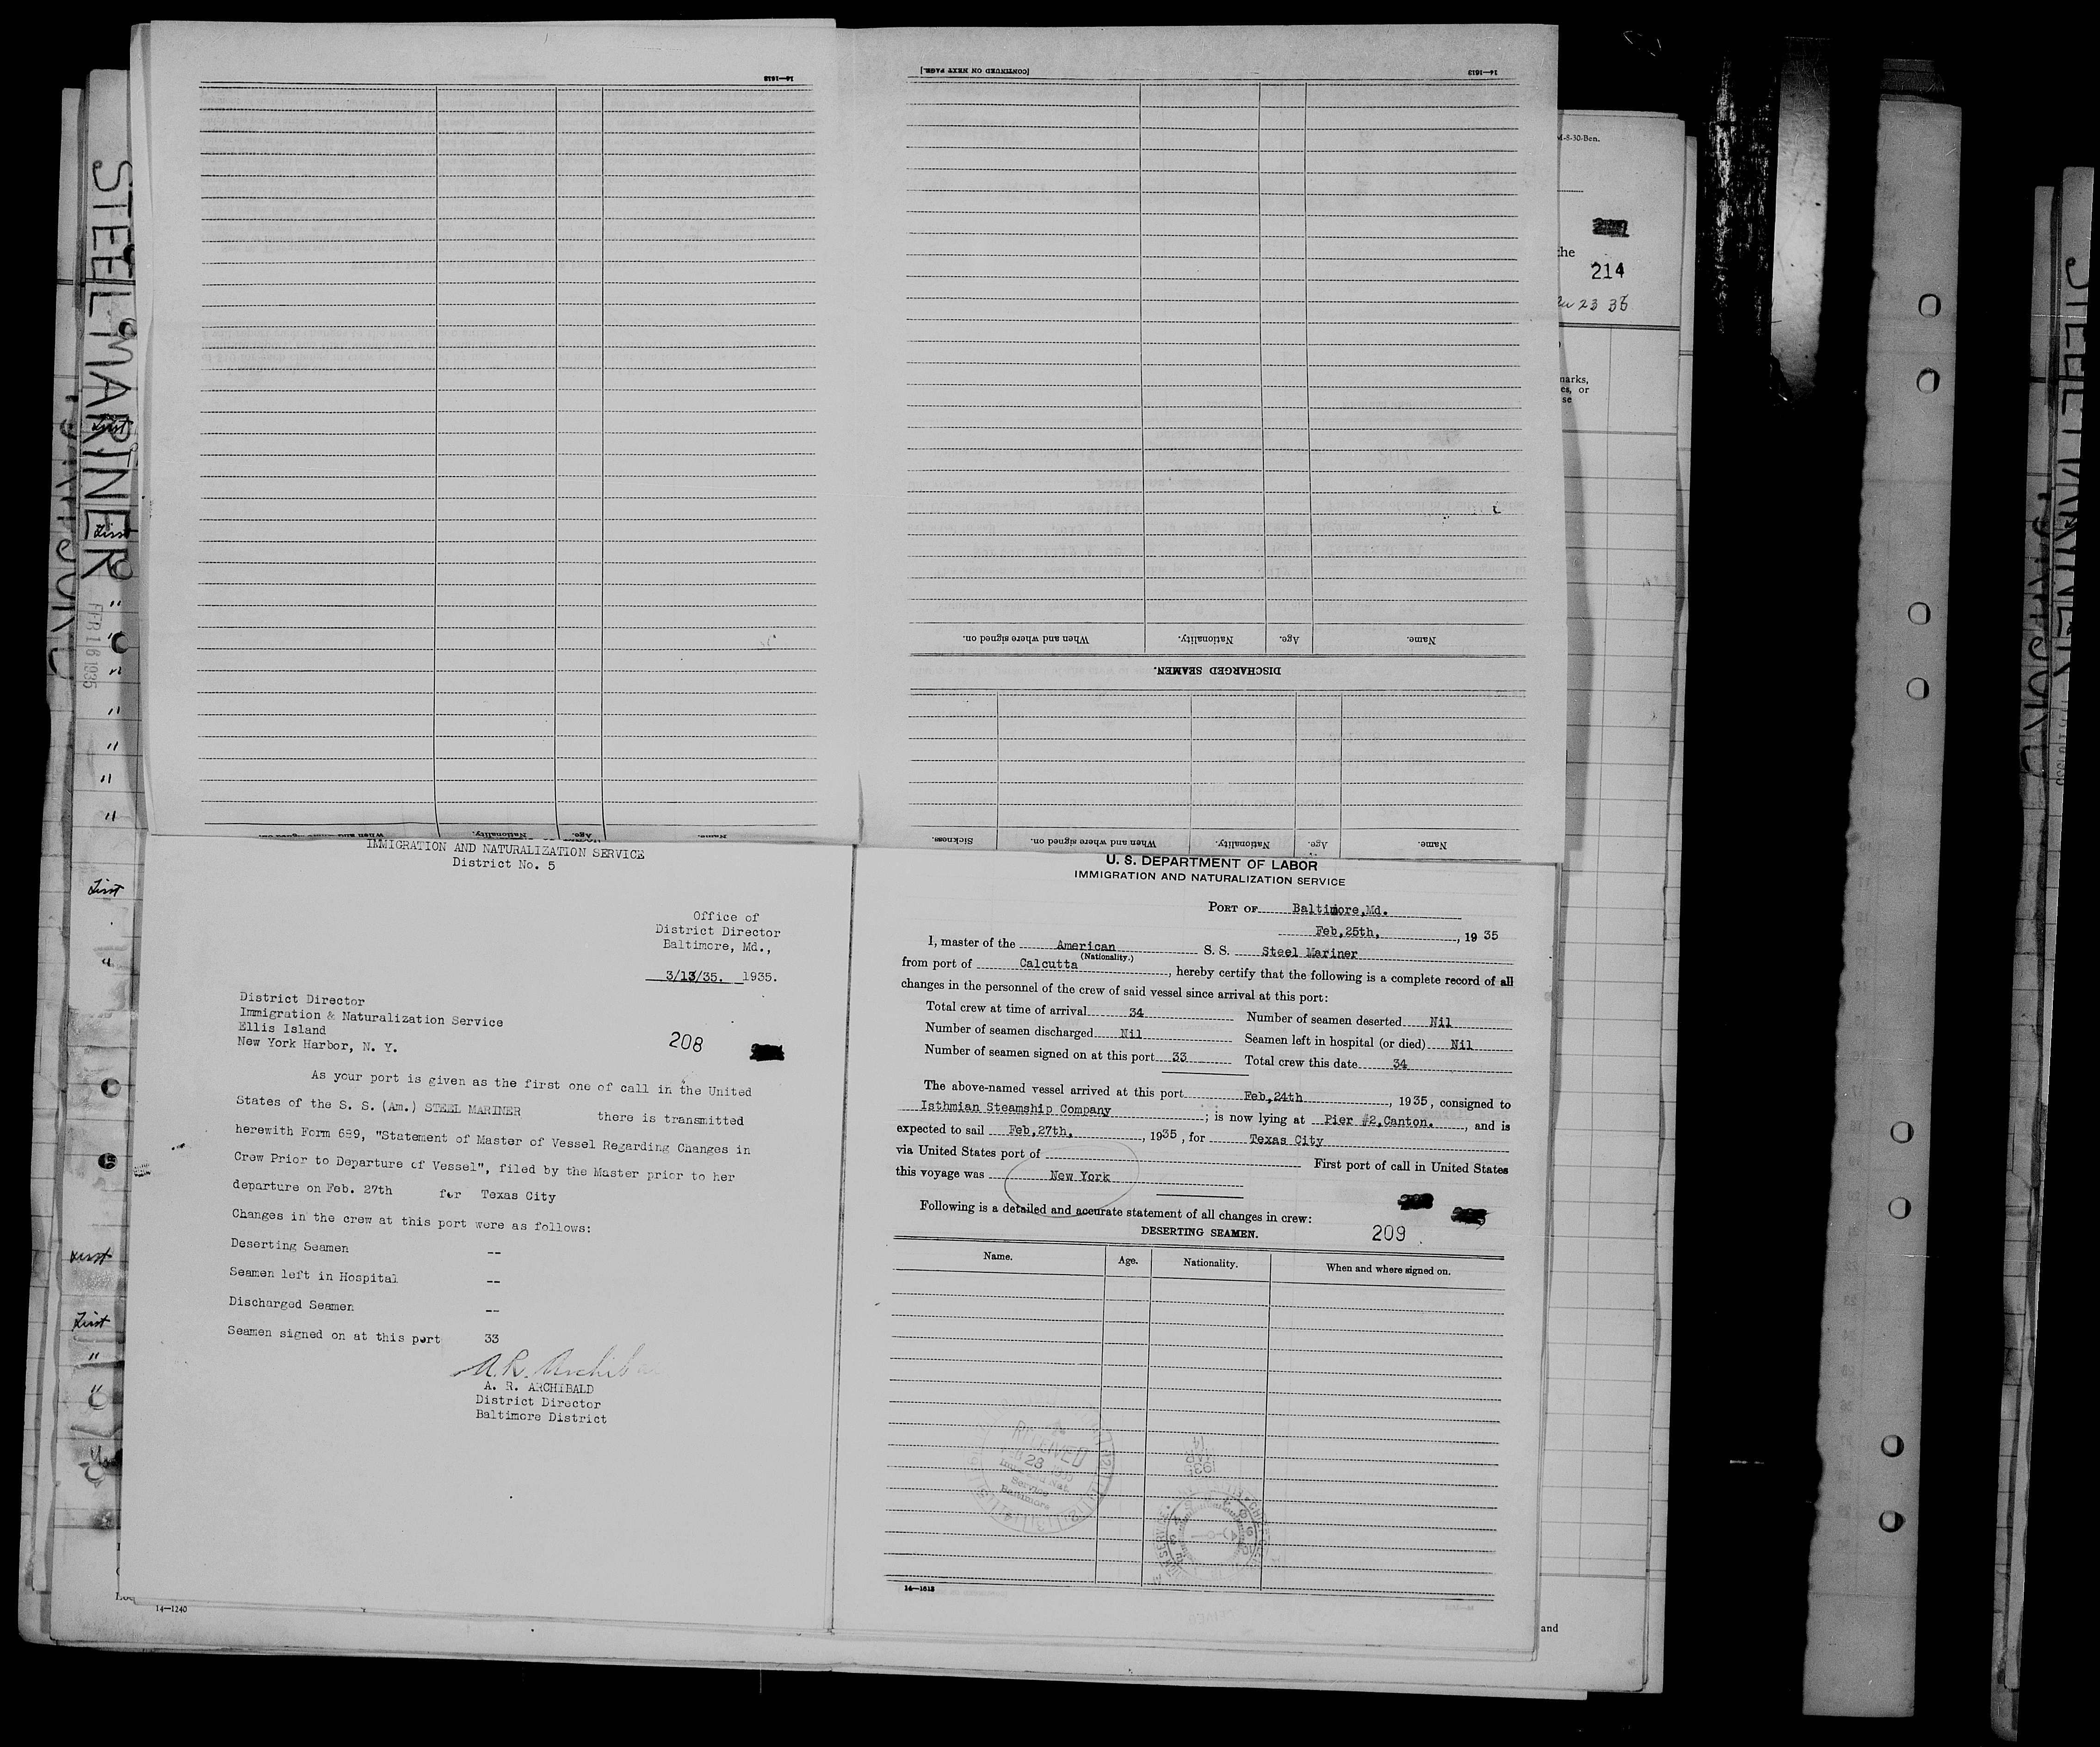 STEEL MARINER
FEB 16 1935
14—1613
[CONTINUED ON NEXT PAGE.]
14—1613
M-8-30-Ben.
the
214
23 35
marks,
es, or
se
Name.
Age.
Nationality.
When and where signed on.
DISCHARGED SEAMEN.
Name.
Age.
Nationality.
When and where signed on.
Sickness.
Name.
Age.
Nationality.
When and where signed on.
List
List
"
"
"
"
"
"
List
"
List
List
"
"
IMMIGRATION AND NATURALIZATION SERVICE
District No. 5
Office of
District Director
Baltimore, Md.,
3/13/35. 1935.
District Director
Immigration & Naturalization Service
Ellis Island
New York Harbor, N. Y.
208
As your port is given as the first one of call in the United
States of the S. S. (Am.) STEEL MARINER there is transmitted
herewith Form 689, "Statement of Master of Vessel Regarding Changes in
Crew Prior to Departure of Vessel", filed by the Master prior to her
departure on Feb. 27th for Texas City
Changes in the crew at this port were as follows:
Deserting Seamen --
Seamen left in Hospital --
Discharged Seamen --
Seamen signed on at this port 33
A. R. Archibald
A. R. ARCHIBALD
District Director
Baltimore District
14—1240
U. S. DEPARTMENT OF LABOR
IMMIGRATION AND NATURALIZATION SERVICE
PORT OF Baltimore,Md.
Feb,25th, , 19 35
I, master of the American S. S. Steel Mariner
(Nationality.)
from port of Calcutta , hereby certify that the following is a complete record of all
changes in the personnel of the crew of said vessel since arrival at this port:
Total crew at time of arrival 34 Number of seamen deserted Nil
Number of seamen discharged Nil Seamen left in hospital (or died) Nil
Number of seamen signed on at this port 33 Total crew this date 34
The above-named vessel arrived at this port Feb,24th , 1935, consigned to
Isthmian Steamship Company ; is now lying at Pier #2,Canton. , and is
expected to sail Feb,27th, , 1935, for Texas City
via United States port of First port of call in United States
this voyage was New York
Following is a detailed and accurate statement of all changes in crew:
DESERTING SEAMEN.
209
Name. Age. Nationality. When and where signed on.
RECEIVED
23
Service
Baltimore
14—1613
and
STEEL MARINER